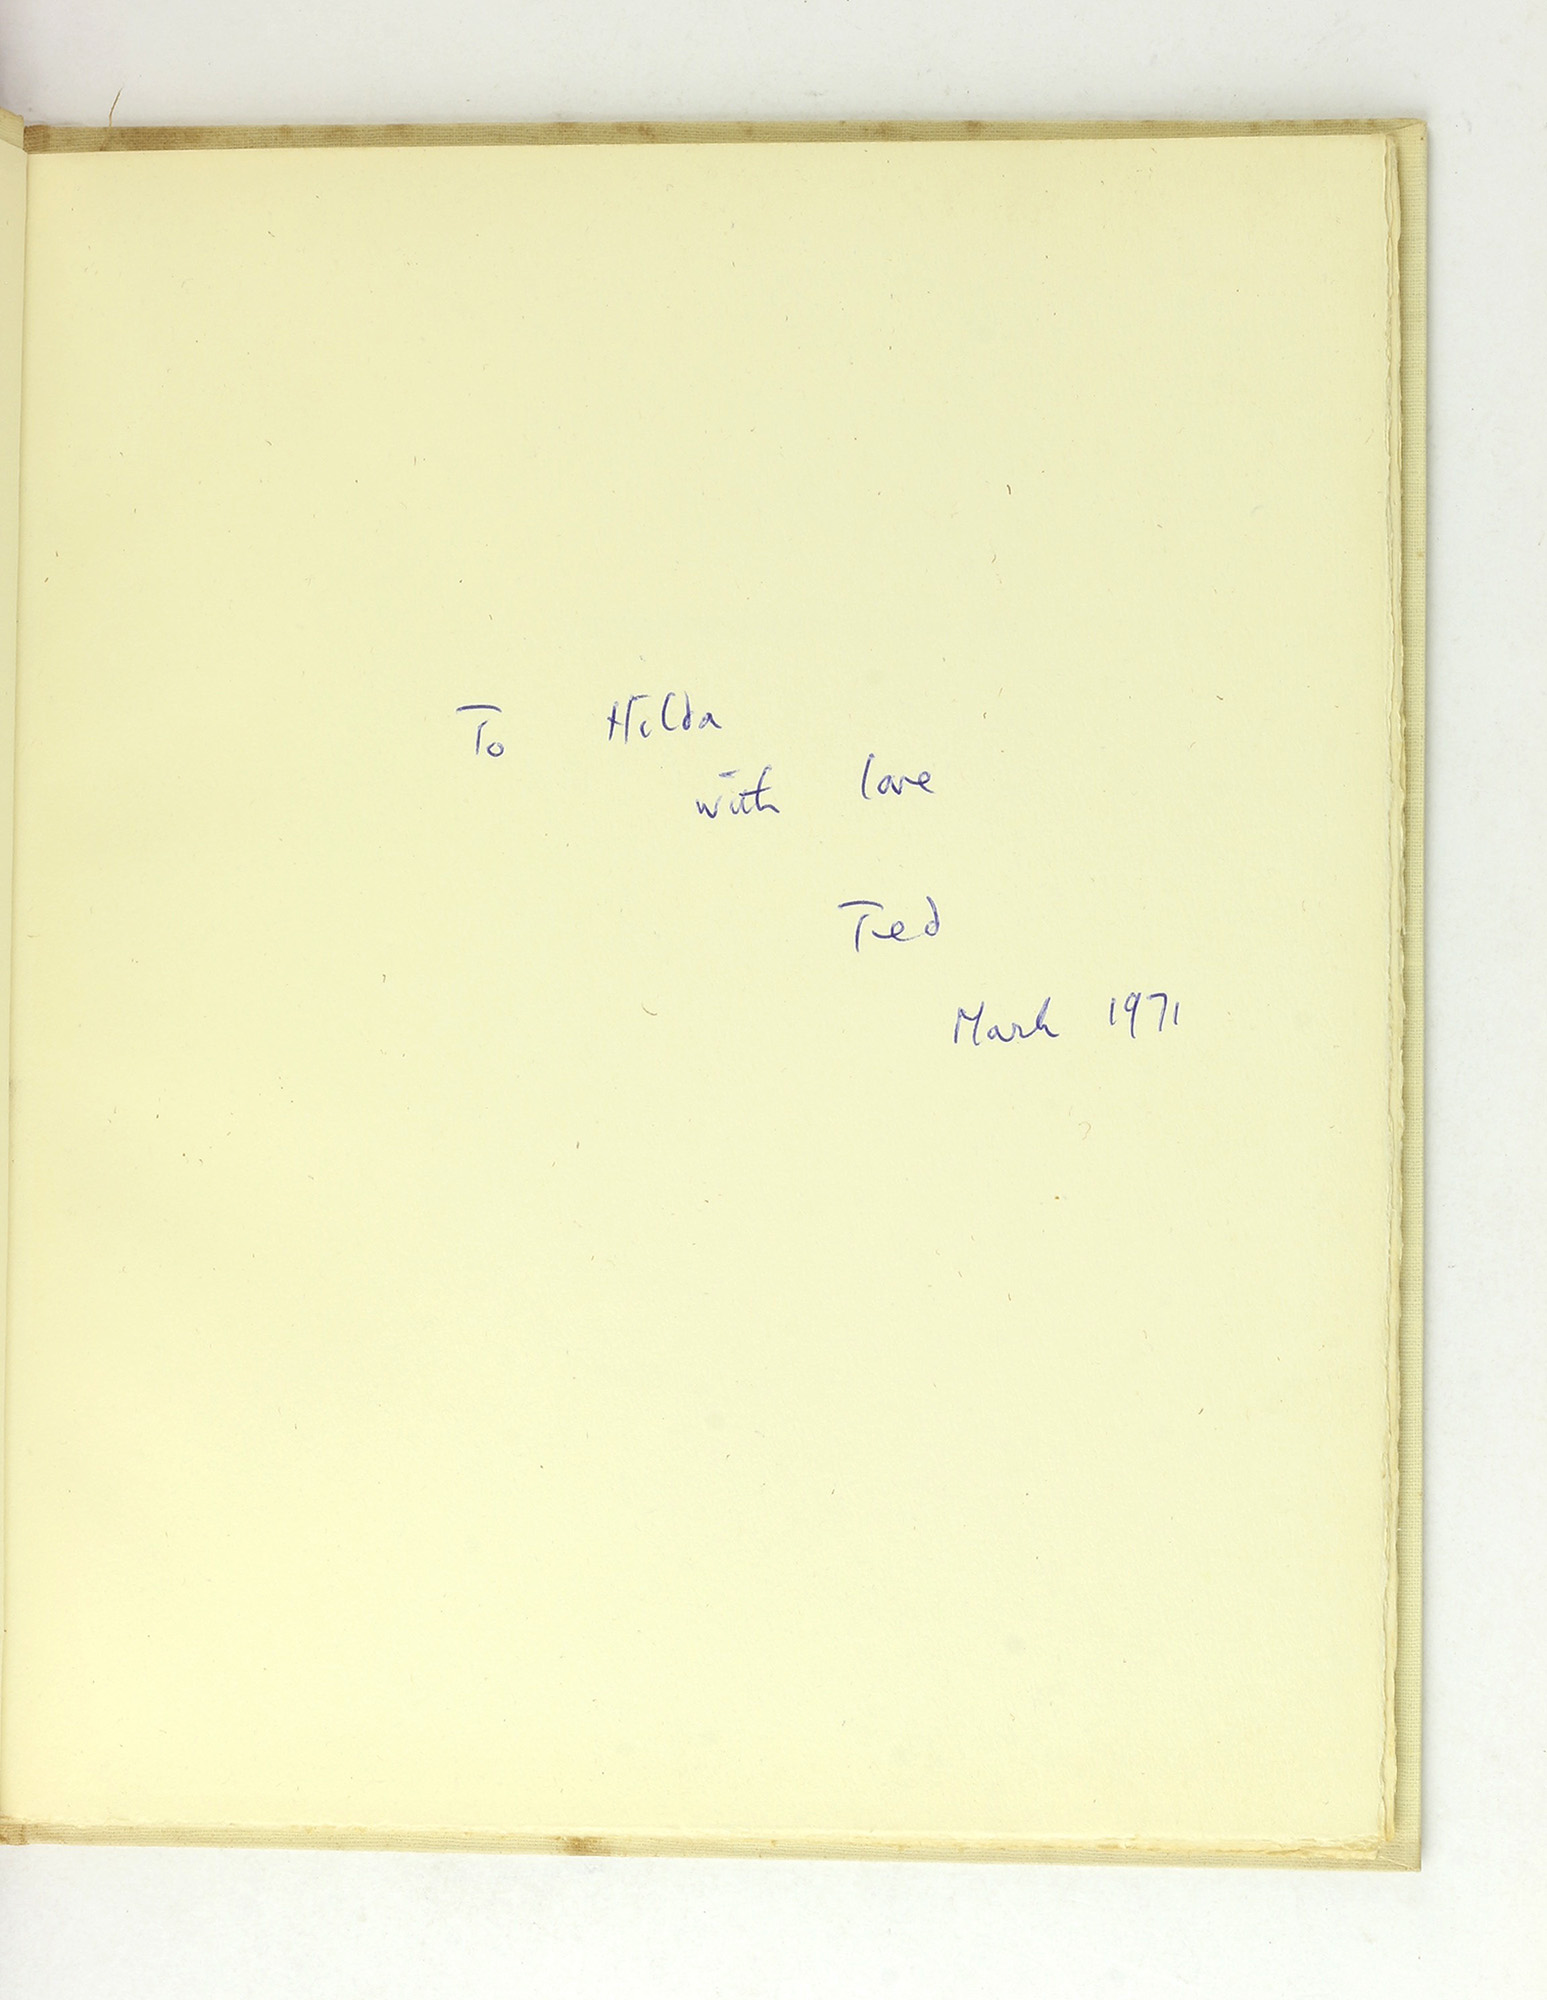 To Hilda
with love
Ted
March 1971